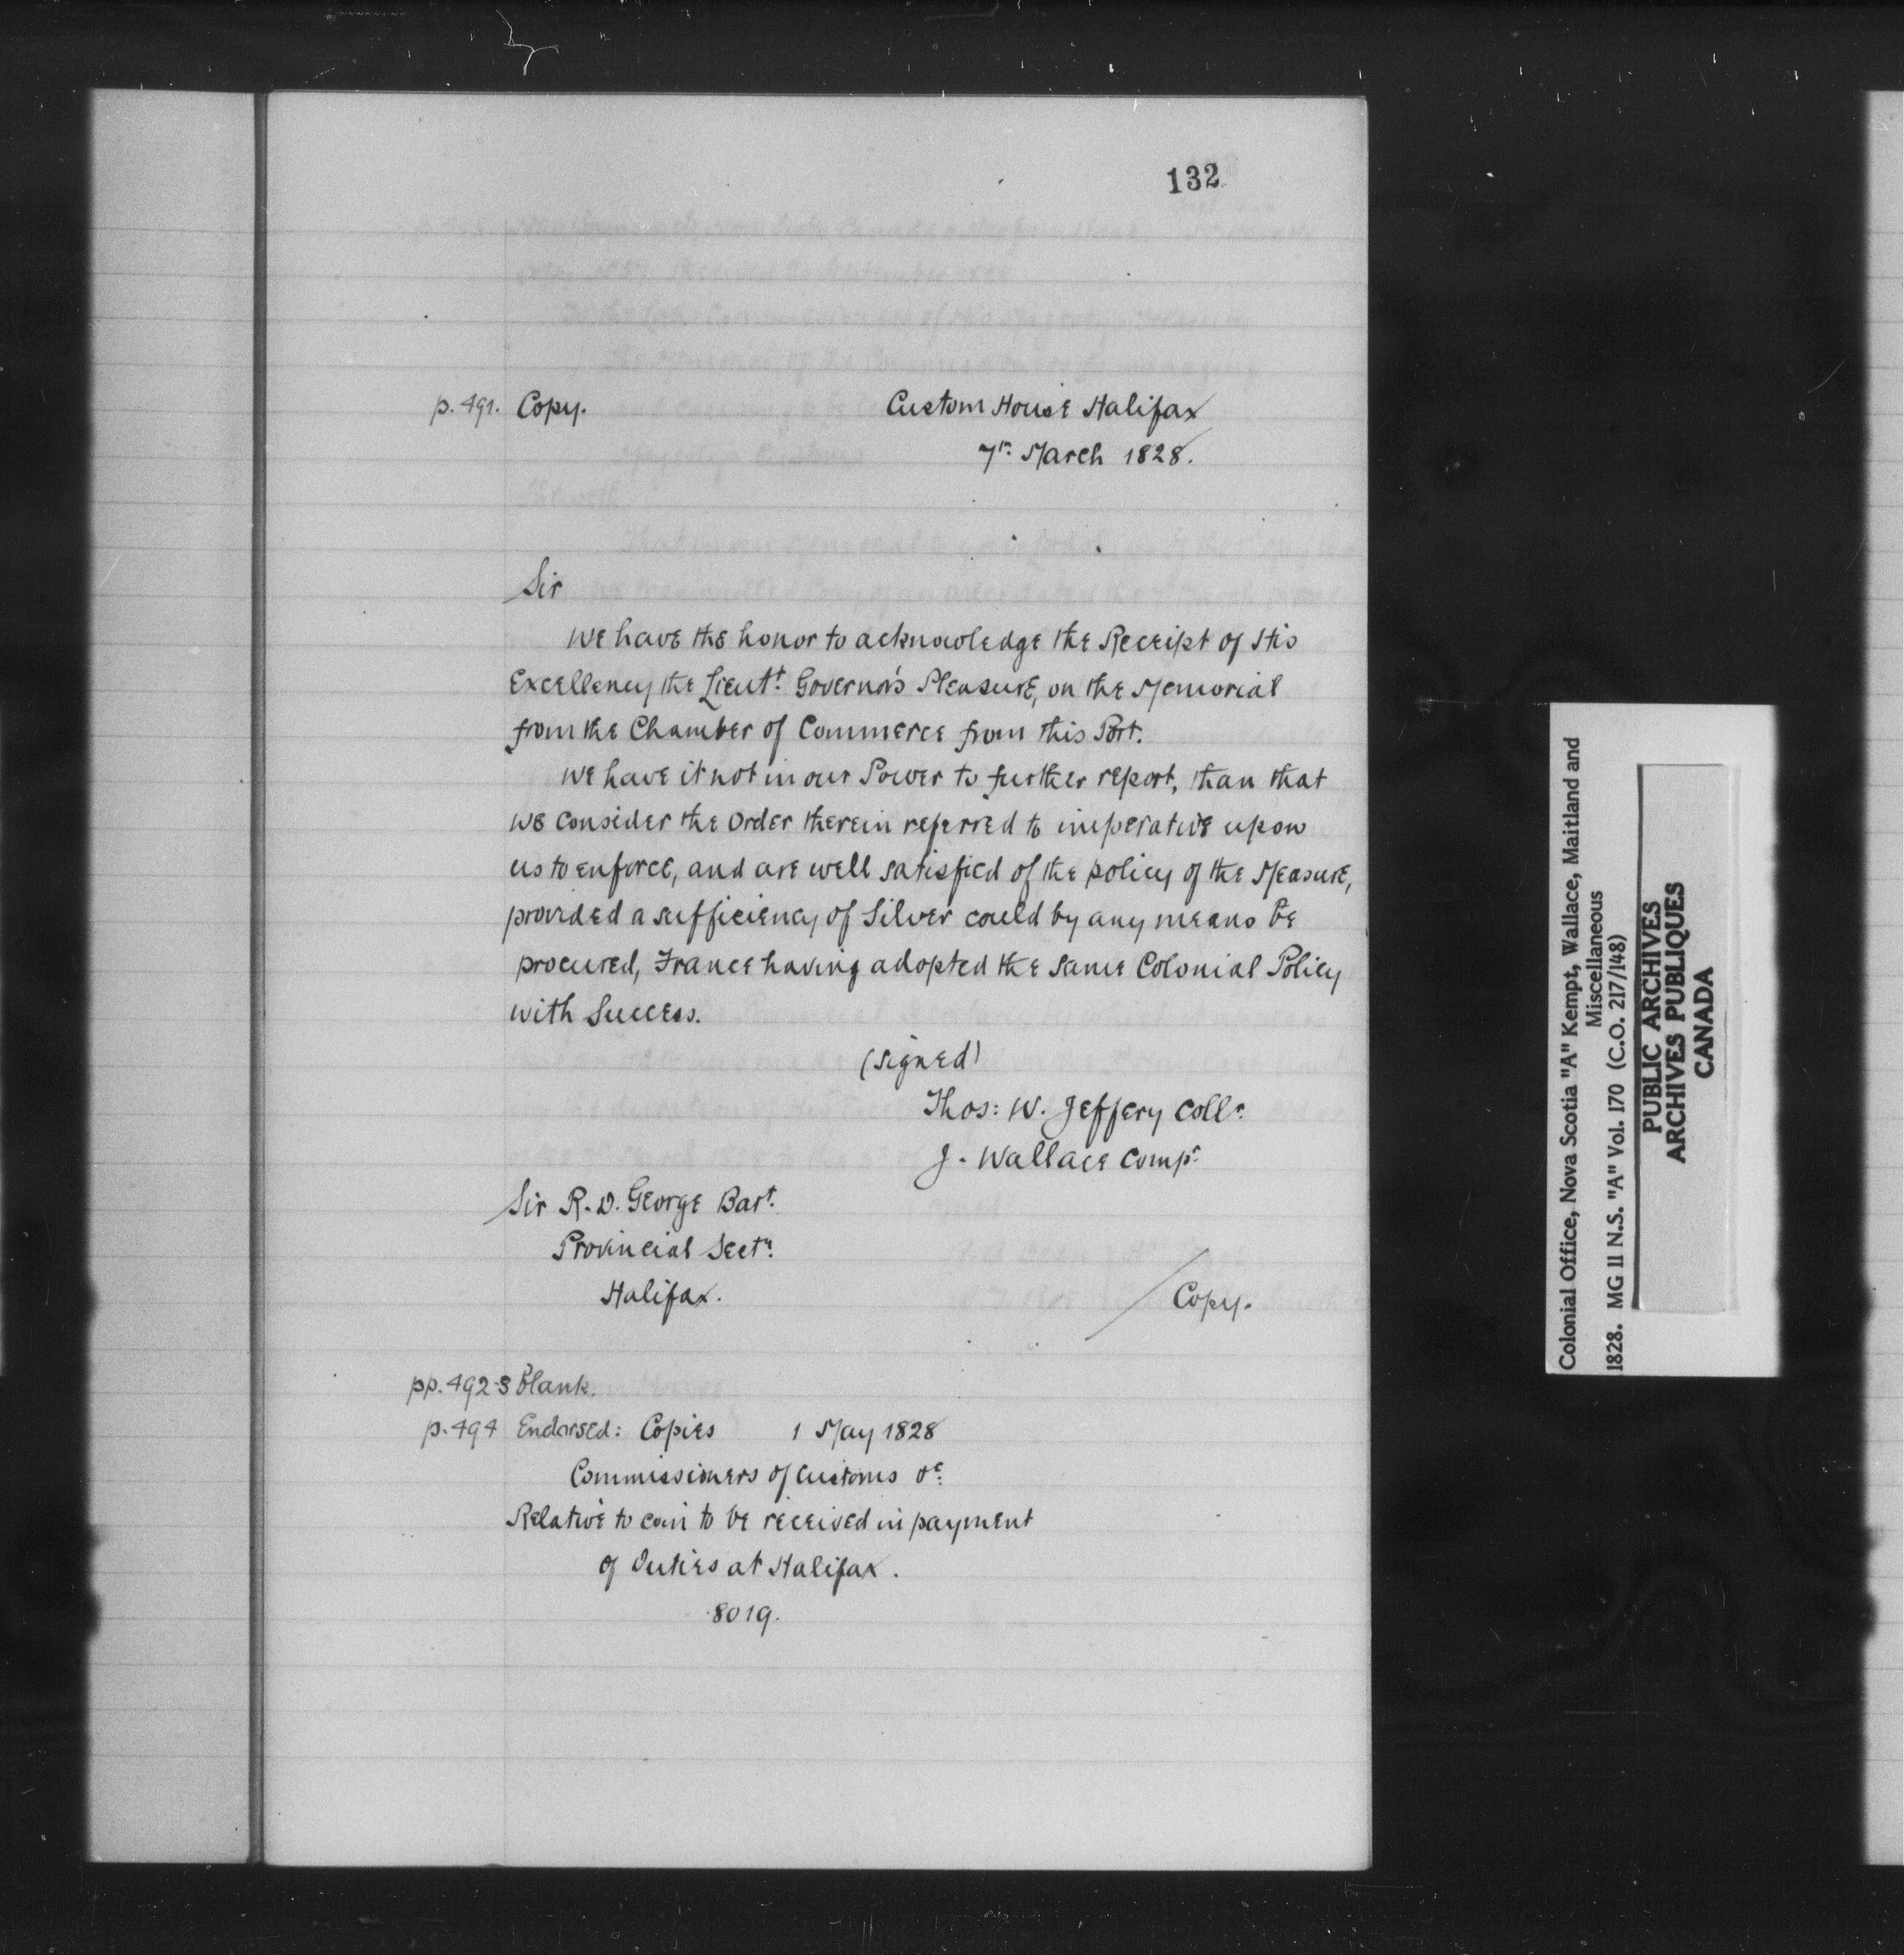 132
p. 491. Copy. Custom House Halifax
7th March 1828.
Sir
We have the honor to acknowledge the Receipt of His
Excellency the Lieut. Governor's Pleasure, on the Memorial
from the Chamber of Commerce from this Port.
We have it not in our Power to further report, than that
we consider the Order therein referred to imperative upon
us to enforce, and are well satisfied of the policy of the Measure,
provided a sufficiency of Silver could by any means be
procured, France having adopted the same Colonial Policy
with Success.
(signed)
Thos: W. Jeffery Collr.
J. Wallace Compr.
Sir R. D. George Bart.
Provincial Secty.
Halifax.
Copy.
pp. 492-3 Blank.
p. 494 Endorsed: Copies 1 May 1828
Commissioners of Customs &c.
Relative to coin to be received in payment
of Duties at Halifax.
8019.
Colonial Office, Nova Scotia "A" Kempt, Wallace, Maitland and
Miscellaneous
1828. MG 11 N.S. "A" Vol. 170 (C.O. 217/148)
PUBLIC ARCHIVES
ARCHIVES PUBLIQUES
CANADA